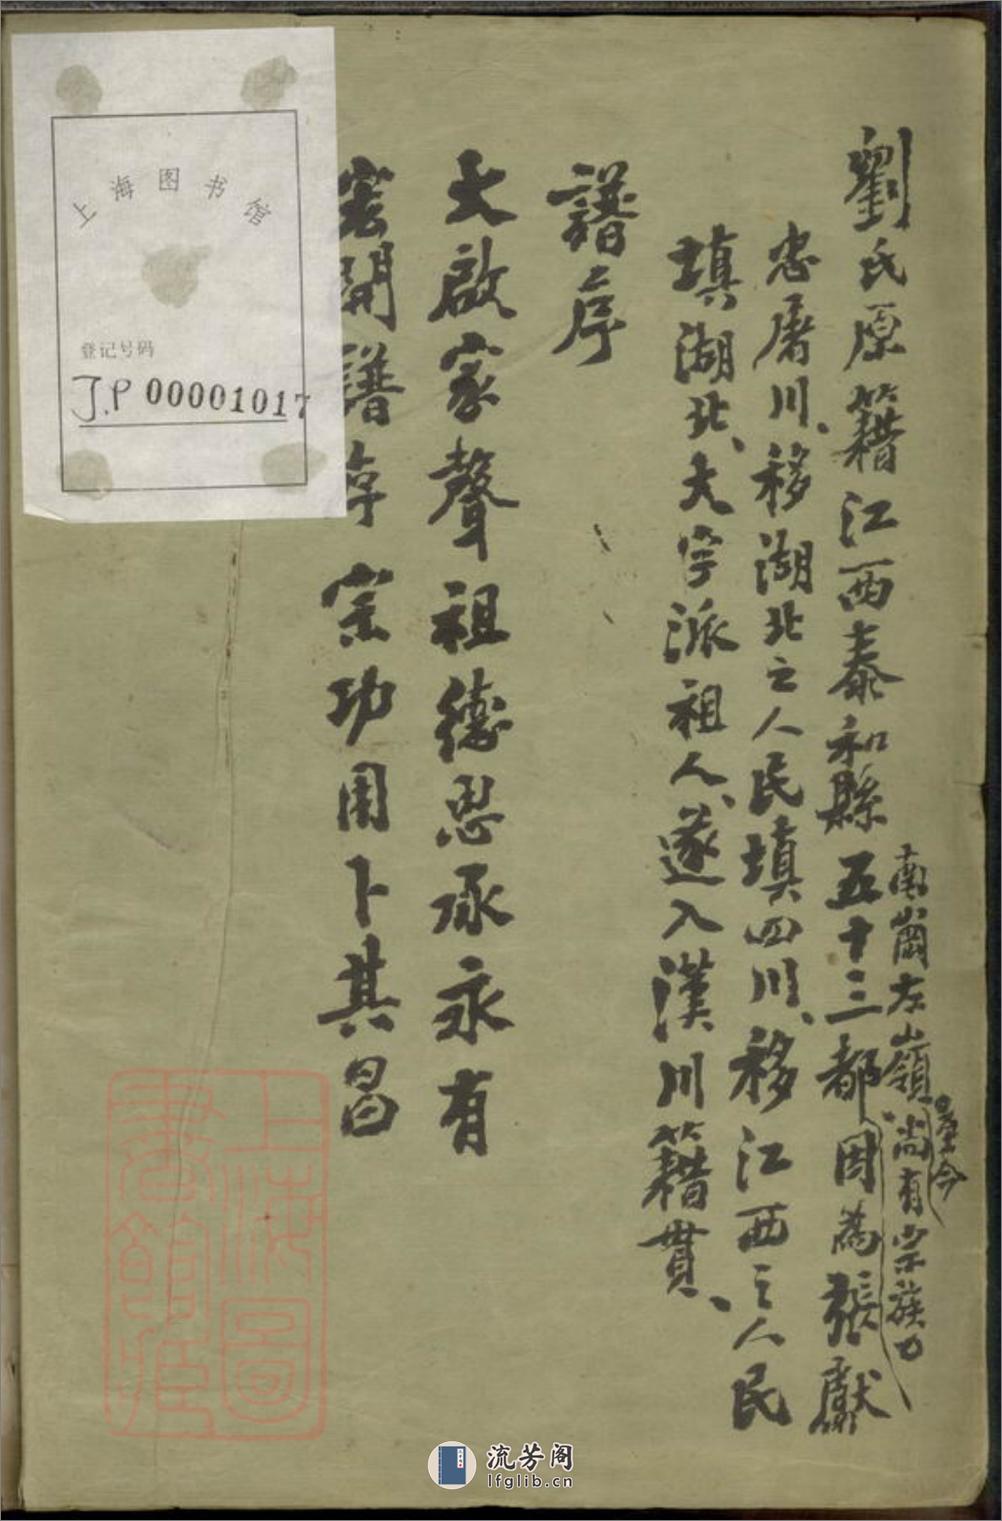 劉氏原籍江西泰和縣五十三都因為張獻
南崗左嶺尚有宗族
至今
忠屠川、移湖北之人民填四川、移江西之人民
填湖北、大字派祖人、遂入漢川籍貫、
譜序
大啟家聲祖德思承永有
宏開譜序宗功用卜其昌
上海图书馆
登记号码
J.P 00001017
上海圖
書館藏
流芳阁
lfglib.cn